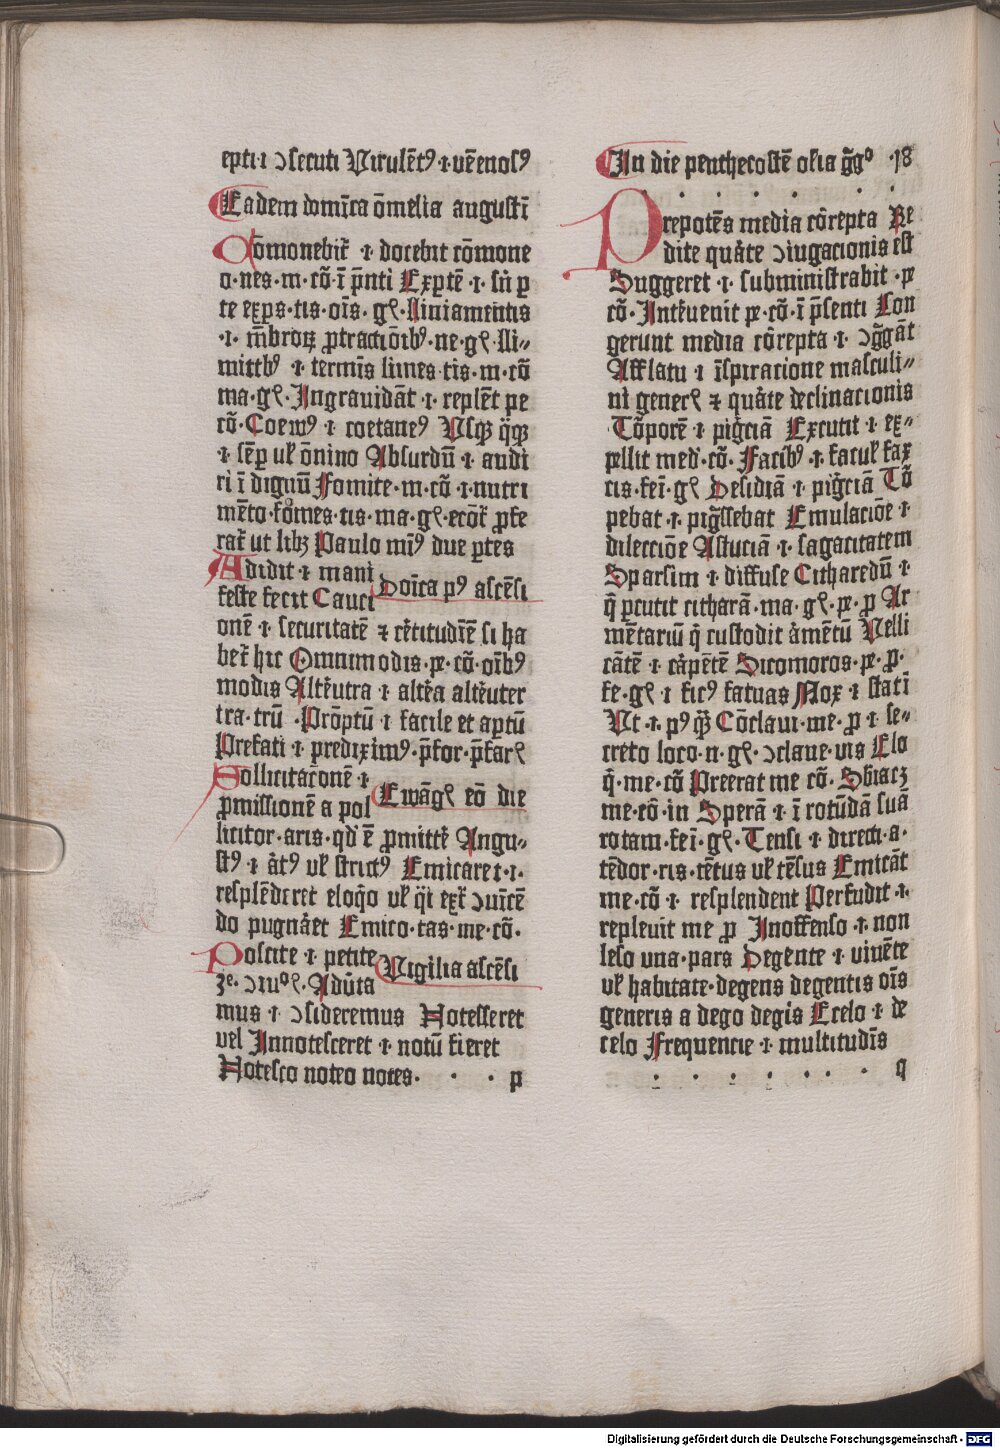 epti ı ɔsecuti Virulēt⁹ ı vēenos⁹
Eadem domīca ōmelia augustī
Comonebit̄ ı docebit cōmone
o·nes·m·cō·ī p̄nti Exꝑtē ı sn̄ ꝑ
te exps·tis·oīs·gꝭ liniamentis
·ı· mēbroꝝ ꝓtractiōıb⁹·ne·gꝭ Ui⸗
mittb⁹ ı termīs limes tis·m·cō
ma·gꝭ·Ingrauidāt ı replēt pe
cō·Coem⁹ ı coetane⁹ Usqꝫ q̈qꝫ
ı sēꝑ ul̄ ōnino Absurdū ı audi
ri ī dignū Fomite·m·cō ı nutri
mēto fomes·tis·ma·gꝭ ecōt̄ ꝓfe
rat̄ ut libꝫ Paulo mī⁹ due ꝑtes
Adidit ı mani
feste fecit Cauci
Doīca p⁹ ascēsi
onē ı securitatē ⁊ cētitudīē si ha
bet̄ hic Omnimodis·pe·cō·oīb⁹
modis Altēutra ı altēa altēuter
tra·trū ·Prōptū ı facile et aptū
Prefati ı predixim⁹·p̄for·p̄farꝭ
Sollicitac̄onē ı
ꝓmissionē a pol
Ewāgꝭ eō die
licitor·aris·qd' ē ꝓmittē Angu⸗
st⁹ ı āt⁹ ul̄ strict⁹ Emicaret·ı·
resplēderet eloq̄o ul̄ q̈i ext̄ ɔuīcē
do pugnāet Emico·tas·me·cō·
Poscite ı petite
Vigilia ascēsi
ze·ɔiuoꝭ·Adūta
mus ı ɔsideremus Notesseret
vel Innotesceret ı notū fieret
Notesco noteo notes· · · p
In die penthecostē oīia ḡgo ·18
Prepotēs media cōrepta Re
dite quāte ɔiugacionis est
Suggeret ı subministrabit·pe
cō·Intēuenit pe·cō·ī p̄senti Con
gerunt media cōrepta ı ɔḡgāt
Afflatu ı īspiracione masculi⸗
ni generꝭ ⁊ quāte declinacionis
Tōporē ı pig̈ciā Excutit ı ex⸗
pellit med·cō·Facib⁹ ı facul̄ fax
cis·feī·gꝭ Desidiā ı pig̈ciā Tō
pebat·ı·pig̈ssebat Emulaciōe ı
dilecciōe Astuciā ı·sagacitatem
Sparsim ı diffuse Citharedū ı
q̄ ꝑcutit citharā·ma·gꝭ·pe·ꝓ Ar
mētariū q̄ custodit āmētū Velli
cātē ı cāpētē Sicomoros·pe·ꝓ·
fe·gꝭ ı fic⁹ fatuas Mox ı statī
Vt·ı·p⁹qꝫ Cōclaui·me·ꝓ ı se⸗
creto loco·n·gꝭ·ɔclaue·uis Elo
q̄·me·cō Preerat me cō·Sbiacꝫ
me·cō·in Sperā ı ī rotūdā sua
rotam·feī·gꝭ·Tensi ı directi·a·
tēdor·ris·tētus ul̄ tēsus Emicāt
me·cō·ı resplendent Perfudit ı·
repleuit me ꝓ Inoffenso ı·non
leso una·pars Degente ı·viuēte
ul̄ habitate·degens degentis oīs
generis a dego degis Ecelo ı de
celo Frequencie ı·multitudīs
· · · · · · · q
Digitalisierung gefördert durch die Deutsche Forschungsgemeinschaft - DFG